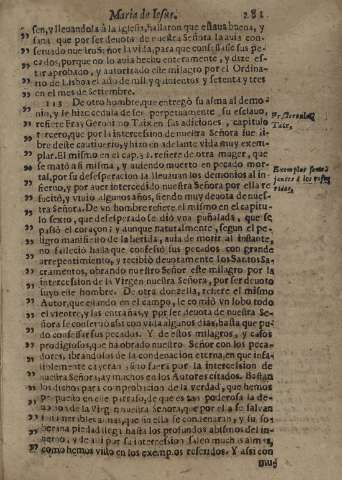 Maria de Iesus. 281
sen, y lleuandola à la Iglesia, hallaron que estaua buena, y
sana que por ser deuota de nuestra Señora la auia con-
seruado nuestro Señor la vida, para que confessasse sus pe-
cados, porque no lo auia hecho enteramente, y dize es-
tar aprobado, y autorizado este milagro por el Ordina-
rio de Lisboa el año de mil y quinientos y setenta y tres
en el mes de Settembre.
113 De otro hombre, que entregò su alma al demo-
nio, y se hizo cedula de ser perpetuamente su esclauo,
refiere Fray Geronimo Taix en sus adiciones, capitulo
tercero, que por la intercession de nuestra Señora fue li-
bre deste cautiuerio, y hizo en adelante vida muy exem-
plar. El mismo en el cap. 5. refiere de otra muger, que
se matò à si misma, y auiendo muerto en pecado mor-
tal, por su desesperacion la lleuauan los demonios al in-
fierno, y por auer intercedido nuestra Señora por ella re
sucitò, y viuio algunos años, siendo muy deuota de nues-
tra Señora. De vn hombre refiere el mismo en el capitu-
lo sexto, que desesperado se diò vna puñalada, que se
passò el coraçon; y aunque naturalmente, segun el pe-
ligro manifiesto de la herida, auia de morir al instante,
no falleciò hasta que confessò sus pecados con grande
arrepentimiento, y recibiò deuotamente los Santos Sa-
cramentos, obrando nuestro Señor este milagro por la
intercession de la Virgen nuestra Señora, por ser deuoto
suyo este hombre. De otra donzella, refiere el mismo
Autor, que estando en el campo, le comiò vn lobo todo
el vientre, y las entrañas, y por ser deuota de nuestra Se-
ñora se conseruò assi con vida algunos dias, hasta que pu-
do confessar sus pecados. Y de estos milagros, y casos
prodigiosos, que ha obrado nuestro Señor con los peca-
dores, librandolos de la condenacion eterna, en que infa-
liblemente cayeran, sino fuera por la intercession de
nuestra Señora, ay muchos en los Autores citados. Bastan
los dichos para comprobacion de la verdad, que hemos
propuesto en este parrafo, de que es tan poderosa la de-
uocion de la Virgen nuestra Señora, que por ella se saluan
innumerables almas, que sin ella se condenaran, y su so-
berana piedad llega hasta los profundos abismos del in-
fierno, y de alli por su intercession salen muchas almas,
como hemos visto en los exemplos referidos. Y assi con
Fr. Geronimo
Taix,
Exemplos seme-
jantes à los refe-
ridos,